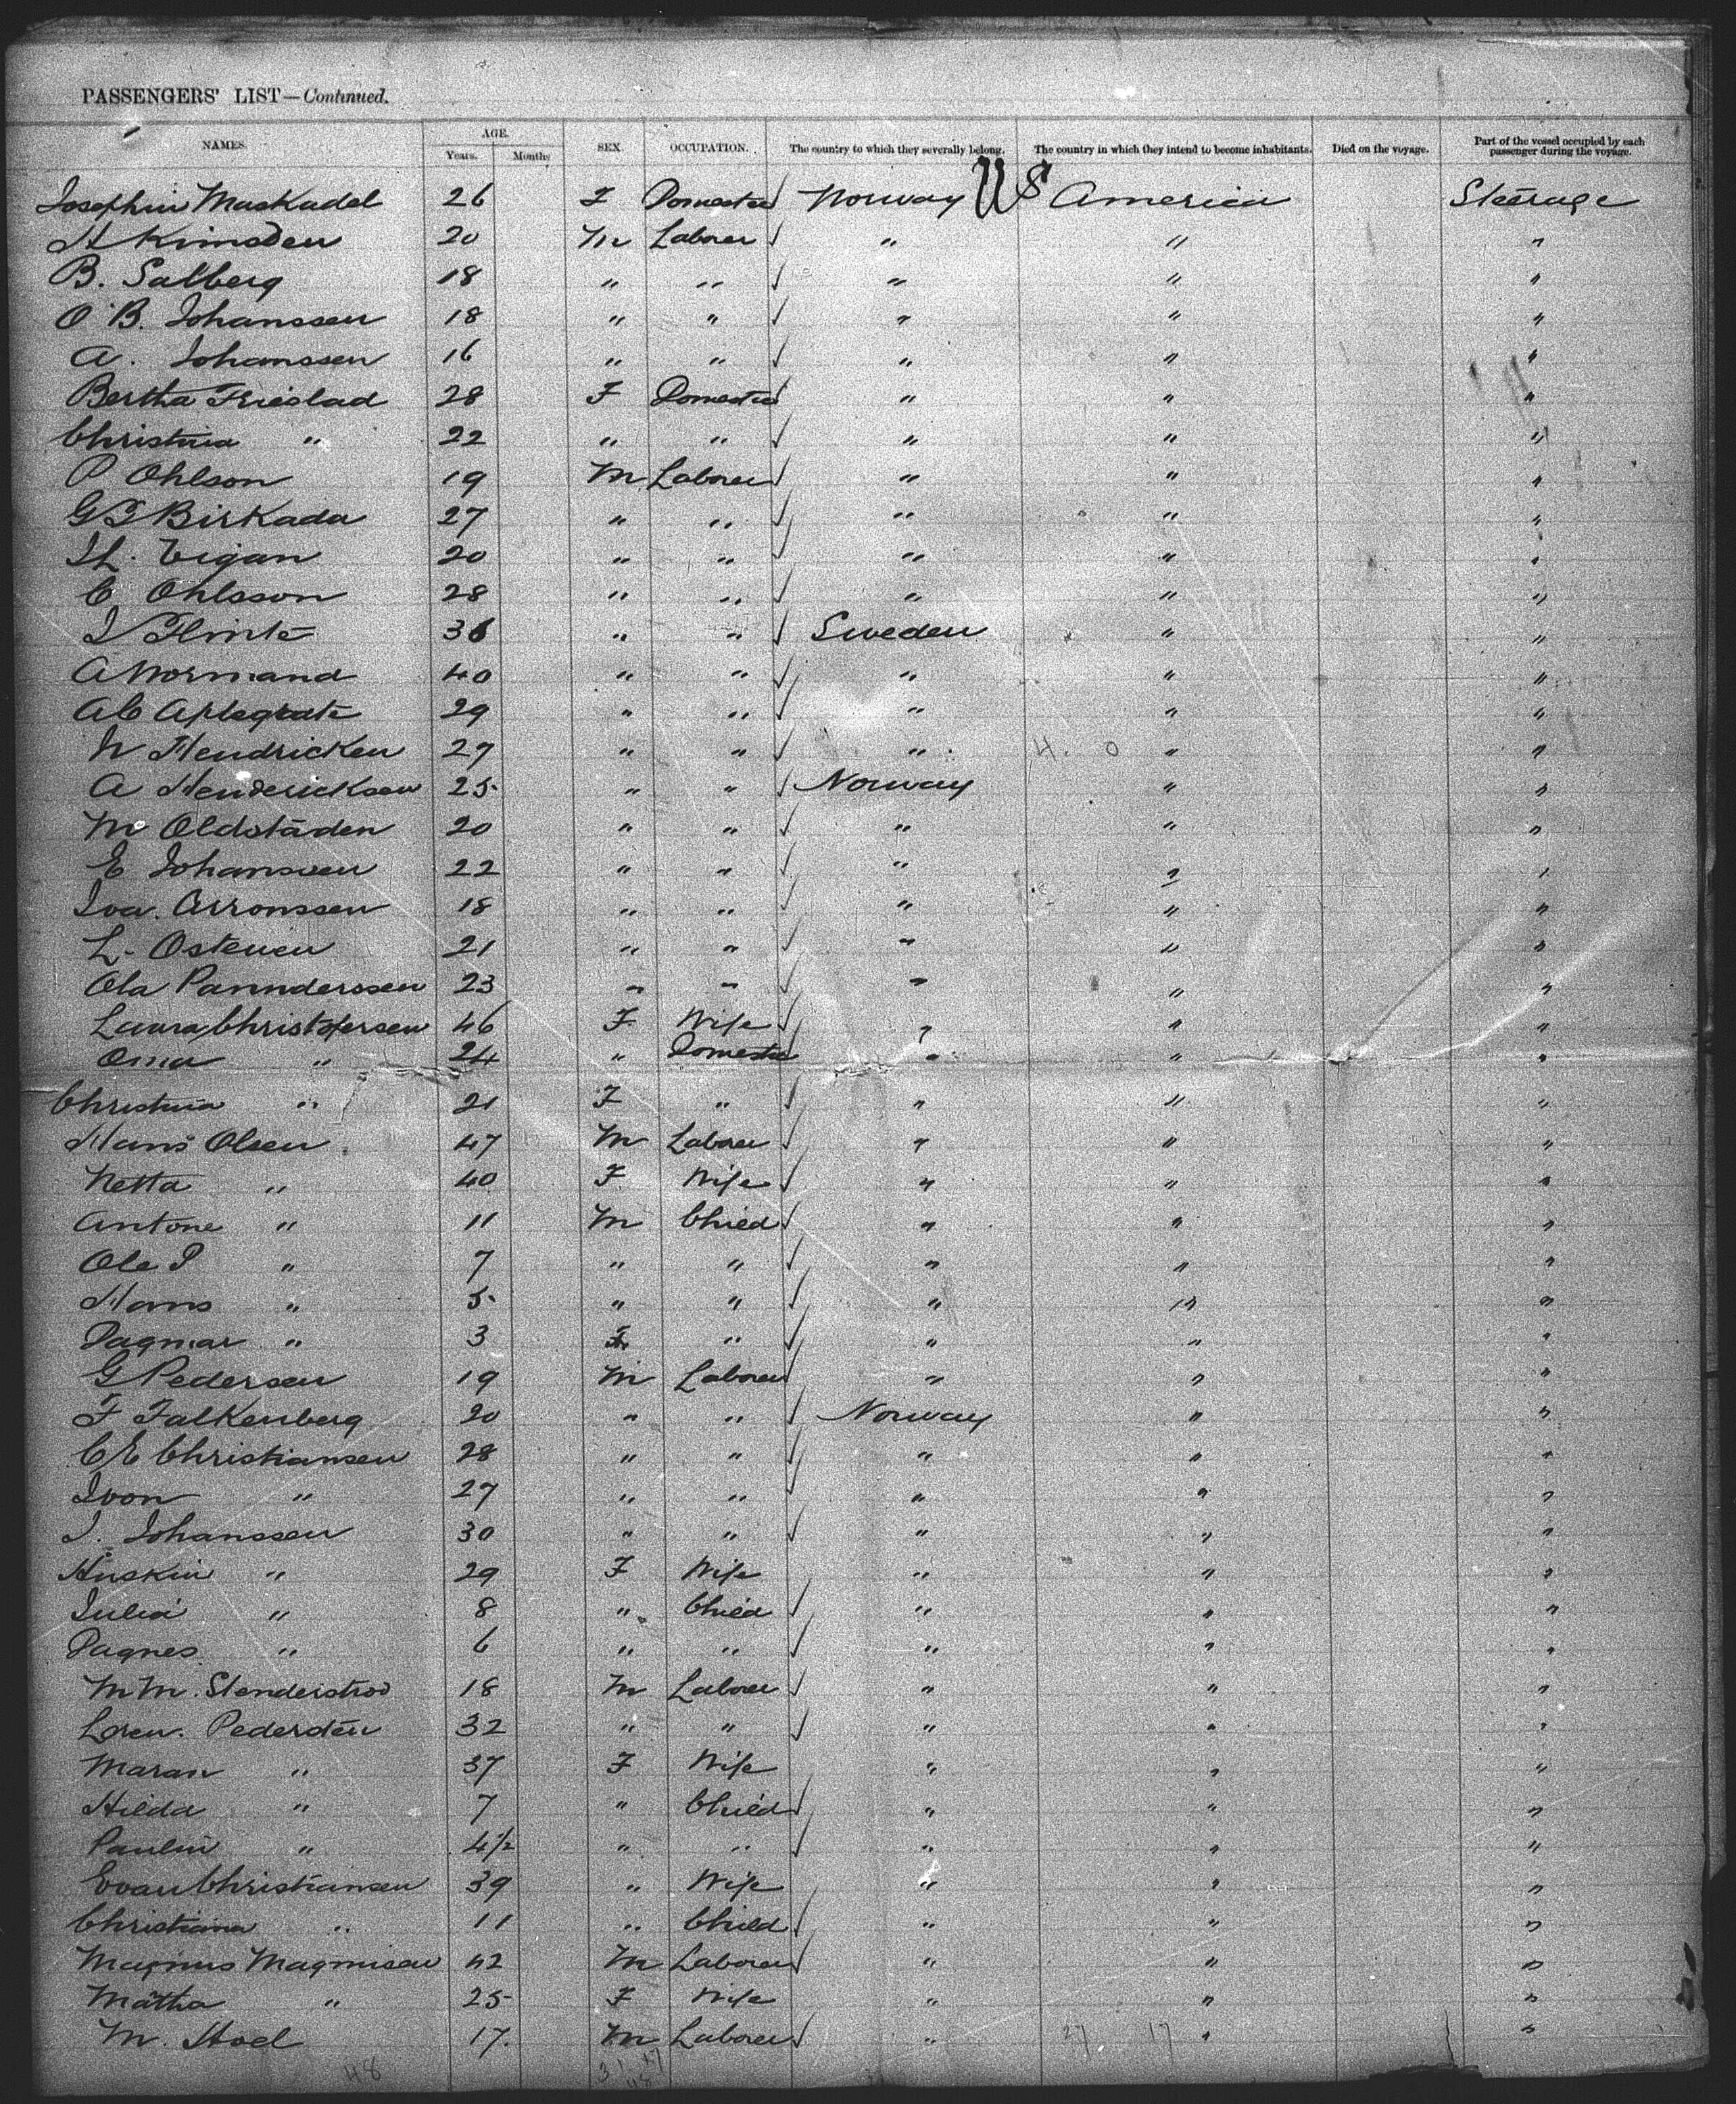 PASSENGERS' LIST—Continued.
NAMES. AGE. SEX. OCCUPATION. The country to which they severally belong. The country in which they intend to become inhabitants. Died on the voyage. Part of the vessel occupied by each passenger during the voyage.
Years. Months
US
Josephin Maskadel 26 F Domestic Norway America Steerage
20 M Laborer " " "
B. Salberg 18 " " " " "
O B. Johanssen 18 " " " " "
A. Johanssen 16 " " " " "
Bertha Frieslad 28 F Domestic " " "
Christina " 22 " " " " "
P Ohlson 19 M Laborer " " "
G T Birkada 27 " " " " "
Eigan 20 " " " " "
C Ohlsson 28 " " " " "
J Flinte 36 " " Sweden " "
A Normand 40 " " " " "
A C Aplegrate 29 " " " " "
N Hendricken 27 " " " " "
A Hendericksen 25 " " Norway " "
M Oldstaden 20 " " " " "
E Johanssen 22 " " " " "
Iva. Arronssen 18 " " " " "
L. Ostenen 21 " " " " "
Ola Pannderssen 23 " " " " "
Laura Christofersen 46 F Wife " " "
Oma " 24 " Domestic " " "
Christina " 21 F " " " "
Hans Olsen 47 M Laborer " " "
Netta " 40 F Wife " " "
Antone " 11 M Child " " "
Ole P " 7 " " " " "
Hans " 5 " " " " "
Dagmar " 3 F " " " "
G Pedersen 19 M Laborer " " "
F Falkenberg 20 " " Norway " "
C E Christiansen 28 " " " " "
Ivon " 27 " " " " "
J. Johanssen 30 " " " " "
" 29 F Wife " " "
Julia " 8 " Child " " "
Dagnes " 6 " " " " "
M M. Slenderstrod 18 M Laborer " " "
Loren. Pedersten 32 " " " " "
Maran " 37 F Wife " " "
Hilda " 7 " Child " " "
Paulin " 4½ " " " " "
Evan Christiansen 39 " Wife " " "
Christiana " 11 " Child " " "
Magnus Magnusen 42 M Laborer " " "
Matha " 25 F Wife " " "
M. Hoel 17. M Laborer " " "
48 31 17 48